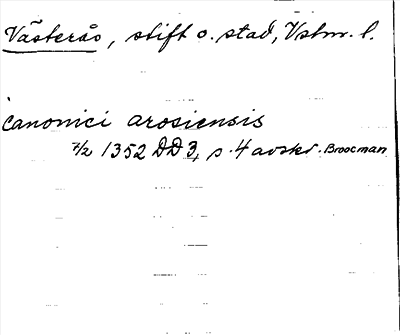 Västerås, stift o. stad, Vstm. l.
canonici arosiensis
7/2 1352 DD3, s. 4 avskr. Broocman